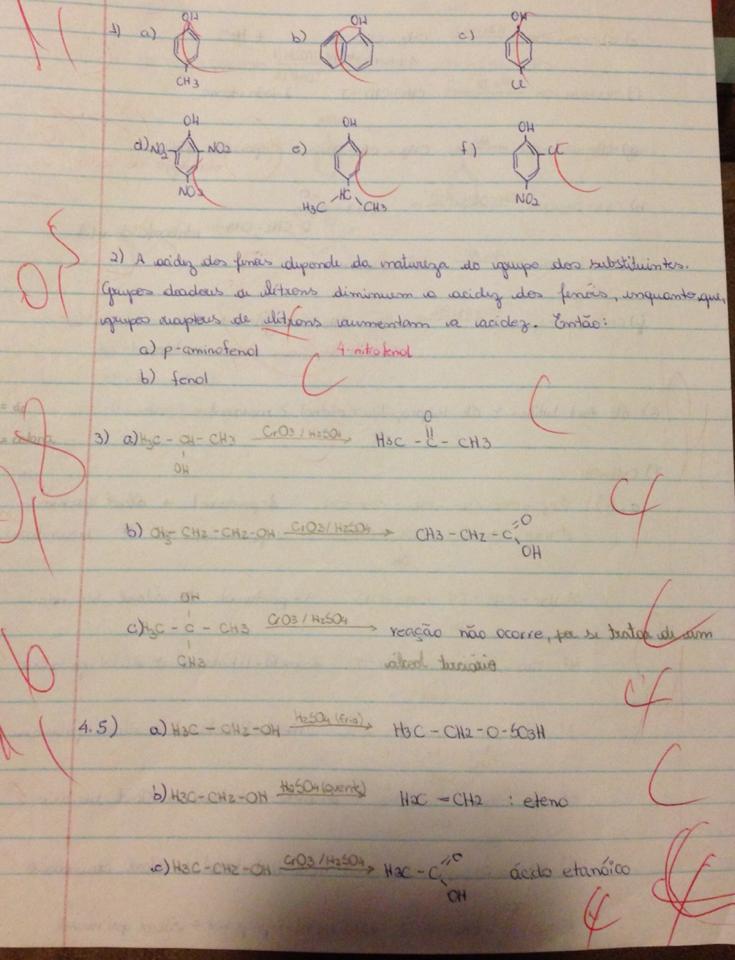 1) a) OH CH3 b) OH c) OH Cl
d) OH NO2 NO2 NO2 e) OH HC H3C CH3 f) OH Cl NO2
2) A acidez dos fenóis depende da natureza do grupo dos substituintes.
Grupos doadores de elétrons diminuem a acidez dos fenóis, enquanto que,
grupos receptores de elétrons aumentam a acidez. Então:
a) p-aminofenol 4-nitrofenol
b) fenol
3) a) H3C - CH - CH3 CrO3/H2SO4 H3C - C - CH3
OH O
b) CH3 - CH2 - CH2 - OH CrO3/H2SO4 CH3 - CH2 - C O OH
OH
c) H3C - C - CH3 CrO3/H2SO4 reação não ocorre, por se tratar de um
CH3 álcool terciário
4.5) a) H3C - CH2 - OH H2SO4 (frio) H3C - CH2 - O - SO3H
b) H3C - CH2 - OH H2SO4 (quente) H2C = CH2 : eteno
c) H3C - CH2 - OH CrO3/H2SO4 H3C - C O OH : ácido etanóico